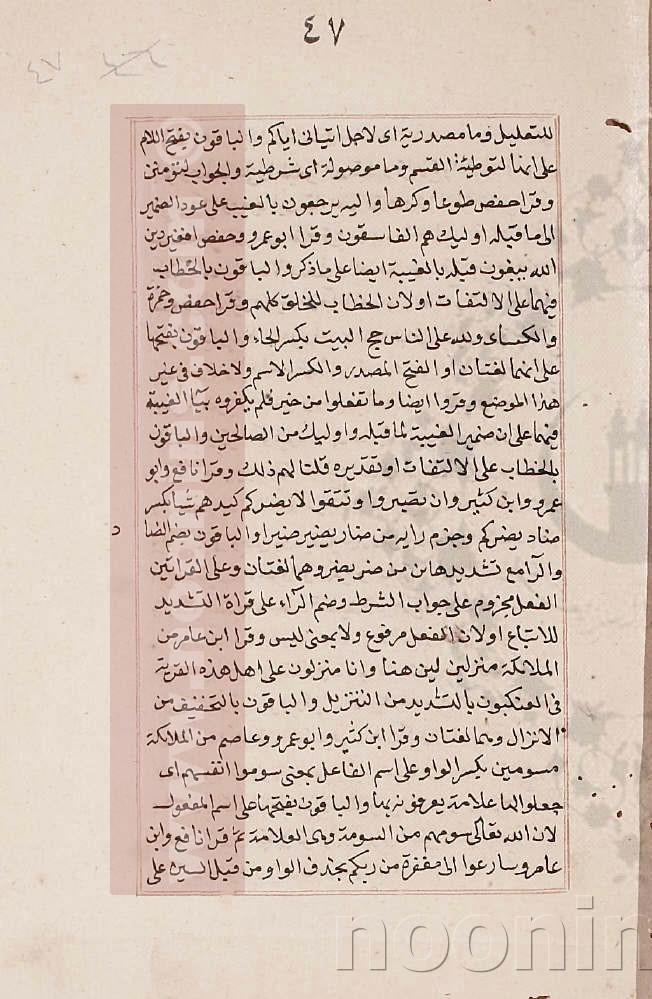 ٤٧
٤٧
للتعليل وما مصدرية اى لاجل اتيانى اياكم والباقون بفتح اللام
على انها لتوطئة القسم وما موصولة اى شرطية والجواب لتؤمنن
وقرا حفص طوعا وكرها واليه يرجعون بالغيب على عود الضمير
الى ما قبله اوليك هم الفاسقون وقرا ابو عمرو وحفص افغير دين
الله يبغون قبله بالغيبة ايضا على ما ذكر والباقون بالخطاب
فيهما على الالتفات او لان الخطاب للخلق كلهم وقرا حفص وحمزة
والكساى ولله على الناس حج البيت بكسر الحاء والباقون بفتحها
على انهما لغتان او الفتح المصدر والكسر الاسم ولا خلاف فى غير
هذا الموضع وقروا ايضا وما تفعلوا من خير فلم يكفروه بيآ الغيبة
فيهما على ان ضمير الغيبة لما قبله واوليك من الصالحين والباقون
بالخطاب على الالتفات او تقديره قلنا لهم ذلك وقرا نافع وابو
عمرو وابن كثير وان تصبروا وتتقوا لا يضركم كيدهم شيا بكسر
ضاد يضركم وجزم رايه من ضار يضير ضيرا والباقون بضم الضا
د
والرآ مع تشديدها من ضر يضر وهما لغتان وعلى القراتين
الفعل مجزوم على جواب الشرط وضم الرآء على قراة التشديد
للاتباع او لان الفعل مرفوع ولا بمعنى ليس وقرا ابن عامر من
الملائكة منزلين لين هنا وانا منزلون على اهل هذه القرية
فى العنكبوت بالتشديد من التنزيل والباقون بالتخفيف من
الانزال وهما لغتان وقرا ابن كثير وابو عمرو وعاصم من الملائكة
مسومين بكسر الواو على اسم الفاعل بمعنى سوموا انفسهم اى
جعلوا لها علامة يعرفونه بها والباقون بفتحها على اسم المفعول
لان الله تعالى سومهم من السومة وهى العلامة ثم قرا نافع وابن
عامر وسارعوا الى مغفرة من ربكم بحذف الواو من قبل السين على
noonin